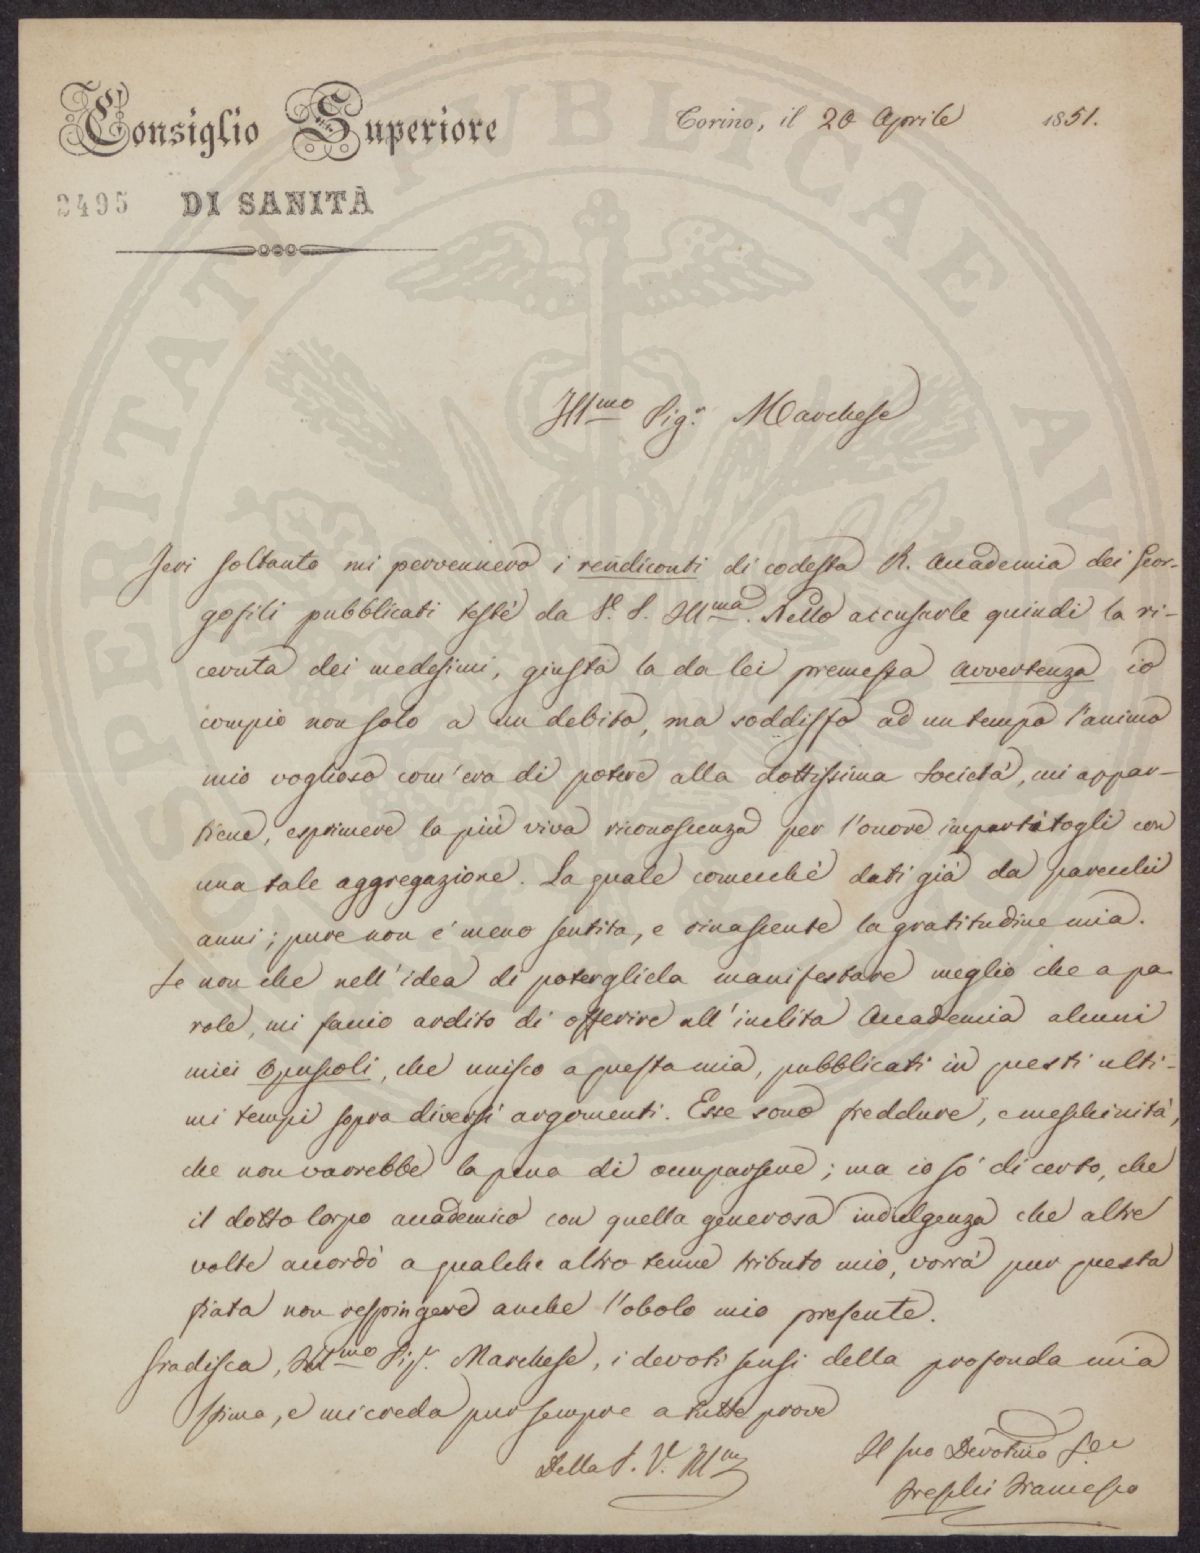 Consiglio Superiore
Torino, il 20 Aprile 1851.
2495 DI SANITÀ
PROSPERITATI PUBLICAE AU
Ill.mo Sig.r Marchese
Jeri soltanto mi pervennero i rendiconti di codesta R. Accademia dei Geor-
gofili pubblicati testè da V. S. Ill.ma. Nello accusarle quindi la ri-
cevuta dei medesimi, giusta la da lei premessa avvertenza io
compio non solo a un debito, ma soddisfo ad un tempo l'animo
mio voglioso com'era di potere alla dottissima Società, mi appar-
tiene, esprimere la più viva riconoscenza per l'onore impartitogli con
una tale aggregazione. La quale comecchè dati già da parecchi
anni; pure non è meno sentita, e rinascente la gratitudine mia.
Se non che nell'idea di potergliela manifestare meglio che a pa
role, mi faccio ardito di offerire all'inclita Accademia alcuni
miei Opuscoli, che unisco a questa mia, pubblicati in questi ulti-
mi tempi sopra diversi argomenti. Esse sono freddure, e meschinità,
che non varrebbe la pena di occuparsene; ma io so di certo, che
il dotto Corpo accademico con quella generosa indulgenza che altre
volte accordò a qualche altro tenue tributo mio, vorrà pur questa
fiata non respingere anche l'obolo mio presente.
Gradisca, Ill.mo Sig.r Marchese, i devoti sensi della profonda mia
stima, e mi creda pur sempre a tutte prove
Della S. V. Ill.ma
Il suo Devot.mo
Freschi Francesco